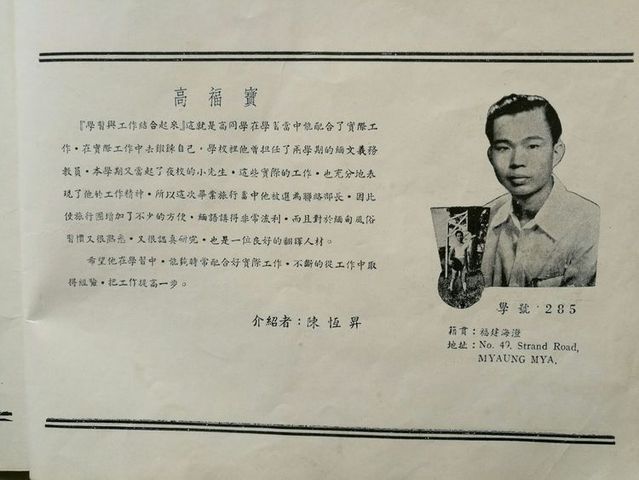 高福寶
『學習與工作結合起來』這就是高同學在學習當中能配合了實際工
作。在實際工作中去鍛鍊自己。學校裡他曾担任了兩學期的緬文義務
教員。本學期又當起了夜校的小先生。這些實際的工作。也充分地表
現了他於工作精神。所以這次畢業旅行當中他被選為聯絡部長。因此
使旅行團增加了不少的方便。緬語講得非常流利。而且對於緬甸風俗
習慣又很熟悉。又很認真研究。也是一位良好的翻譯人材。
希望他在學習中。能夠時常配合好實際工作。不斷的從工作中取
得經驗。把工作提高一步。
介紹者：陳恆昇
學號·285
籍貫：福建海澄
地址：No. 49. Strand Road,
MYAUNG MYA.